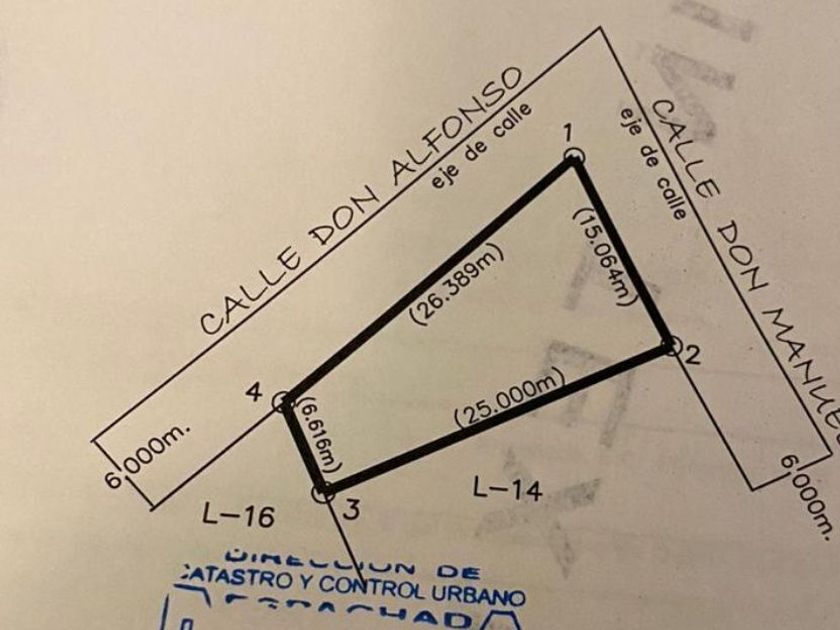 CALLE DON ALFONSO
eje de calle
CALLE DON MANUE
eje de calle
1
(15.064m)
(26.389m)
2
4
(6.616m)
(25.000m)
6.000m.
6.000m.
3
L-14
L-16
DIRECCION DE
CATASTRO Y CONTROL URBANO